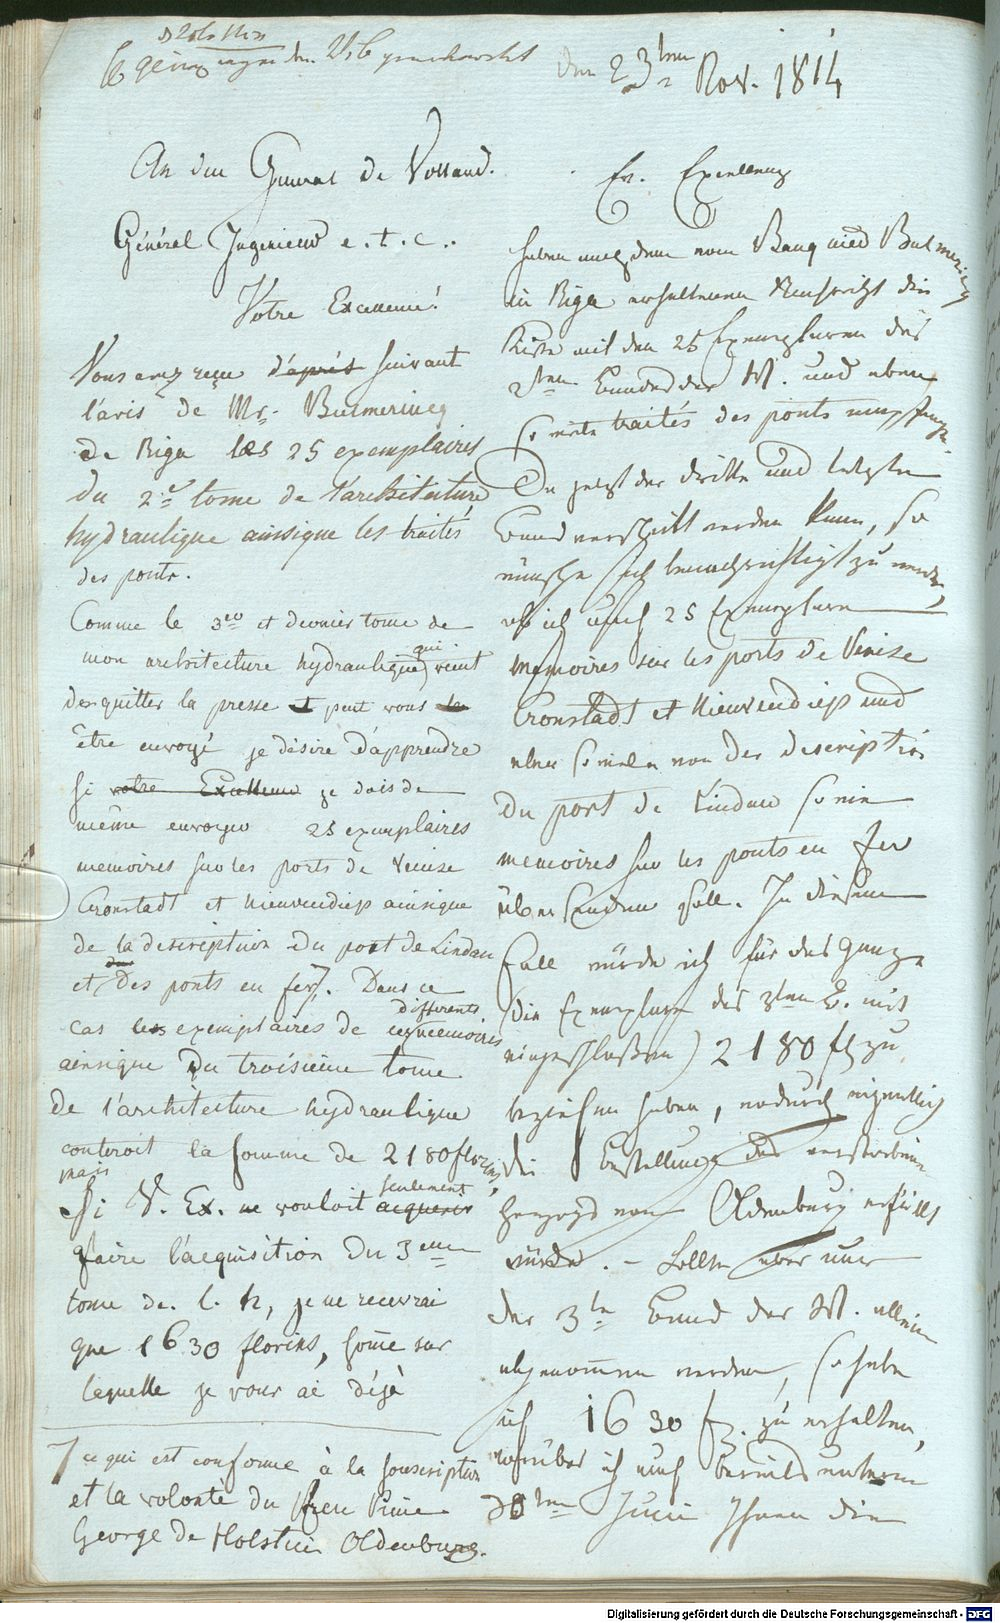 den 23ten Nov. 1814
An den General de Volland.
Général Ingenieur e. t. c..
Votre Excellence!
Vous avez reçu d'aprés suivant
l'avis de Mr. Bulmerincq
de Riga les 25 exemplaires
du 2e tome de l'architecture
hydraulique ainsique les traités
des ponts.
Comme le 3eo et dernier tome de
mon architecture hydraulique qui vient
de quitter la presse et peut vous
être envoyé je désire d'apprendre
si votre Excellence je dois de
même envoyer 25 exemplaires
memoires sur les ports de Venise
Cronstadt et Nieuvendiep ainsique
de la description du port de Lindau
et des ponts en fer. Dans ce
cas les exemplaires de differents memoires
ainsique du troisieme tome
de l'architecture hydraulique
conteroit la somme de 2180 florins,
mais
Si V. Ex. ne vouloit seulement acquerir
faire l'acquisition du 3eme
tome de. l. h, je ne recevrai
que 1630 florins, some sur
laquelle je vous ai déjà
ce qui est conforme à la souscription
et la volonté du feu Prince
George de Holstein Oldenburg.
Ew. Excellenz
haben nach dem vom Banq Bulmerincq
in Riga erhaltenen die
Kiste mit den 25 Exemplaren des
2ten Bandes der W. und eben
so viele traités des ponts empfangen.
Da jetzt der dritte und letzte
Band verschickt werden kann, so
wünsche ich benachrichtigt zu werden,
ob ich auch 25 Exemplare
memoires sur les ports de Venise
Cronstadt et Nieuvendiep und
eben so viele von der description
du port de Lindau so wie
memoires sur les ponts en fer
übersenden soll. In diesem
Fall würde ich für das Ganze
(die Exemplare des 3ten B. mit
eingeschloßen) 2180 fl zu
beziehen haben, wodurch eigentlich
die Bestellung des verstorbenen
Herzogs von Oldenburg erfüllt
würde. – Sollte aber nur
der 3te Band der W. allein
abgenommen werden, so habe
ich 1630 f. zu erhalten,
worüber ich auch bereits unterm
30ten Juni Ihnen die
Digitalisierung gefördert durch die Deutsche Forschungsgemeinschaft - DFG